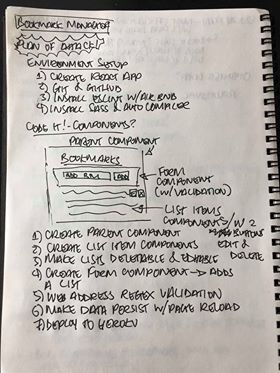 BOOKMARK MANAGER
PLAN OF ATTACK!
ENVIRONMENT SETUP
1) CREATE REACT APP
2) GIT & GITHUB
3) INSTALL ESLINT W/ AIR BNB
4) INSTALL SASS & AUTO COMPILER
CODE IT! - COMPONENTS?
PARENT COMPONENT
BOOKMARKS
ADD B.M. ADD
FORM
COMPONENT
(W/ VALIDATION)
LIST ITEMS
COMPONENTS W/ 2
BUTTONS
EDIT &
DELETE
1) CREATE PARENT COMPONENT
2) CREATE LIST ITEM COMPONENTS
3) MAKE LISTS DELETABLE & EDITABLE
4) CREATE FORM COMPONENT → ADDS
A LIST
5) WEB ADDRESS REGEX VALIDATION
6) MAKE DATA PERSIST W/ PAGE RELOAD
7) DEPLOY TO HEROKU